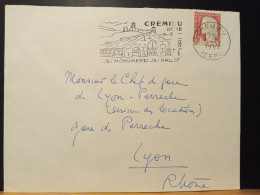 CREMIEU
SES MONUMENTS SES HALLES
Monsieur le Chef de gare
de Lyon - Perrache
(Service des locations)
gare de Perrache
Lyon
Rhône